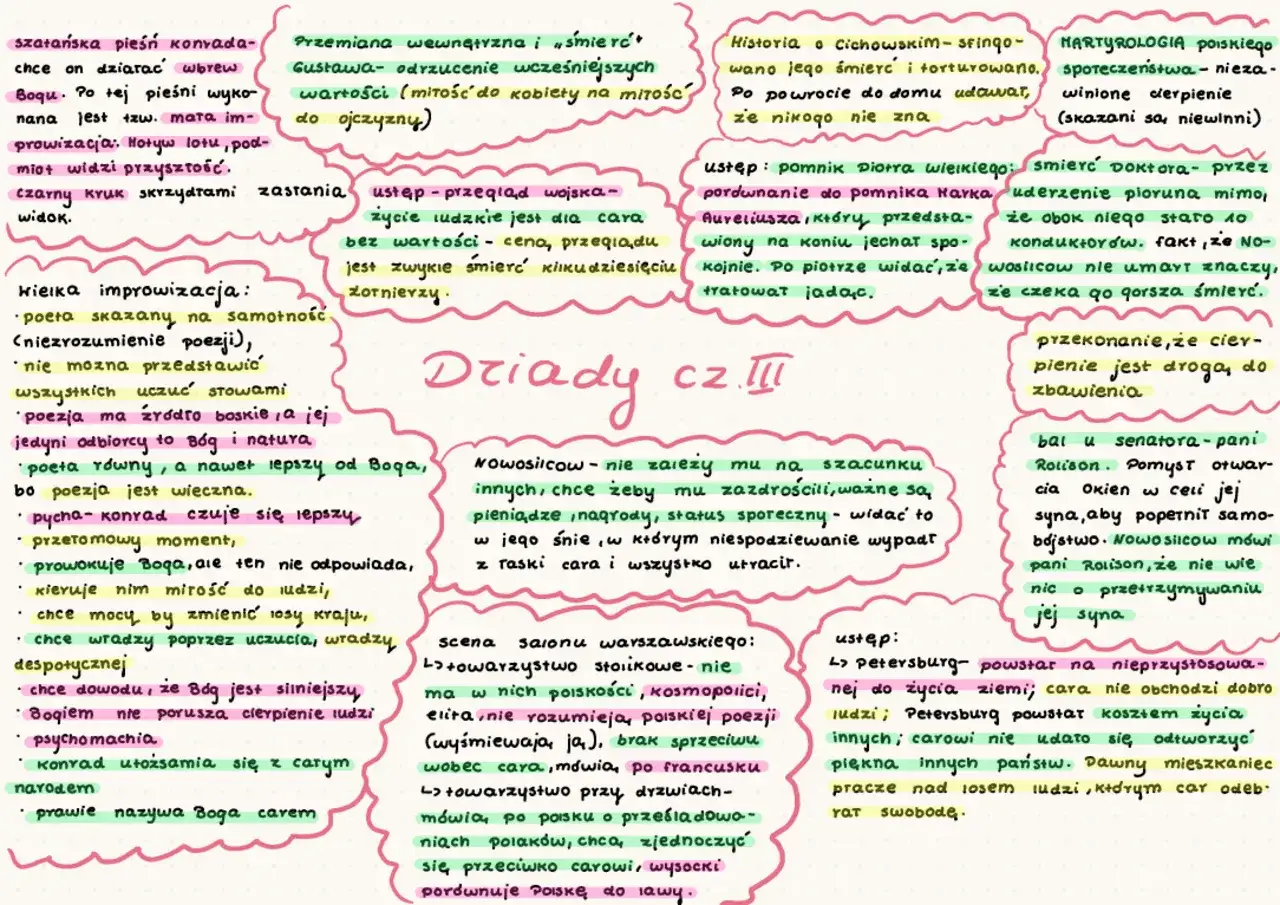 szatańska pieśń Konrada-
chce on działać wbrew
Bogu. Po tej pieśni wyko-
nana jest tzw. mała im-
prowizacja. Motyw lotu, pod-
miot widzi przyszłość.
Czarny kruk skrzydłami zasłania
widok.
Przemiana wewnętrzna i „śmierć"
Gustawa- odrzucenie wcześniejszych
wartości (miłość do kobiety na miłość
do ojczyzny)
Historia o Cichowskim- sfingo-
wano jego śmierć i torturowano.
Po powrocie do domu udawał,
że nikogo nie zna
MARTYROLOGIA polskiego
społeczeństwa - nieza-
winione cierpienie
(skazani są niewinni)
ustęp - przegląd wojska-
życie ludzkie jest dla cara
bez wartości - ceną przeglądu
jest zwykle śmierć kilkudziesięciu
żołnierzy.
ustęp: pomnik Piotra Wielkiego:
porównanie do pomnika Marka
Aureliusza, który przedsta-
wiony na koniu jechał spo-
kojnie. Po piotrze widać, że
tratował jadąc.
śmierć Doktora- przez
uderzenie pioruna mimo,
że obok niego stało 10
konduktorów. fakt, że No-
wosilcow nie umarł znaczy,
że czeka go gorsza śmierć.
Wielka improwizacja:
· poeta skazany na samotność
(niezrozumienie poezji),
· nie można przedstawić
wszystkich uczuć słowami
· poezja ma źródło boskie, a jej
jedyni odbiorcy to Bóg i natura
· poeta równy, a nawet lepszy od Boga,
bo poezja jest wieczna.
· pycha- Konrad czuje się lepszy
· przełomowy moment,
· prowokuje Boga, ale ten nie odpowiada,
· kieruje nim miłość do ludzi,
· chce mocy by zmienić losy kraju,
· chce władzy poprzez uczucia, władzy
despotycznej
· chce dowodu, że Bóg jest silniejszy
· Bogiem nie porusza cierpienie ludzi
· psychomachia
· Konrad utożsamia się z całym
narodem
· prawie nazywa Boga carem
Dziady cz. III
przekonanie, że cier-
pienie jest drogą do
zbawienia
Nowosilcow - nie zależy mu na szacunku
innych, chce żeby mu zazdrościli, ważne są
pieniądze, nagrody, status społeczny - widać to
w jego śnie, w którym niespodziewanie wypadł
z łaski cara i wszystko utracił.
bal u senatora - pani
Rollison. Pomysł otwar-
cia okien w celi jej
syna, aby popełnił samo-
bójstwo. Nowosilcow mówi
pani Rollison, że nie wie
nic o przetrzymywaniu
jej syna
scena salonu warszawskiego:
↳ towarzystwo stolikowe - nie
ma w nich polskości, kosmopolici,
elita, nie rozumieją polskiej poezji
(wyśmiewają ją), brak sprzeciwu
wobec cara, mówią po francusku
↳ towarzystwo przy drzwiach-
mówią po polsku o prześladowa-
niach polaków, chcą zjednoczyć
się przeciwko carowi, wysocki
porównuje Polskę do lawy.
ustęp:
↳ Petersburg- powstał na nieprzystosowa-
nej do życia ziemi; cara nie obchodzi dobro
ludzi; Petersburg powstał kosztem życia
innych; carowi nie udało się odtworzyć
piękna innych państw. Dawny mieszkaniec
płacze nad losem ludzi, którym car odeb-
rał swobodę.